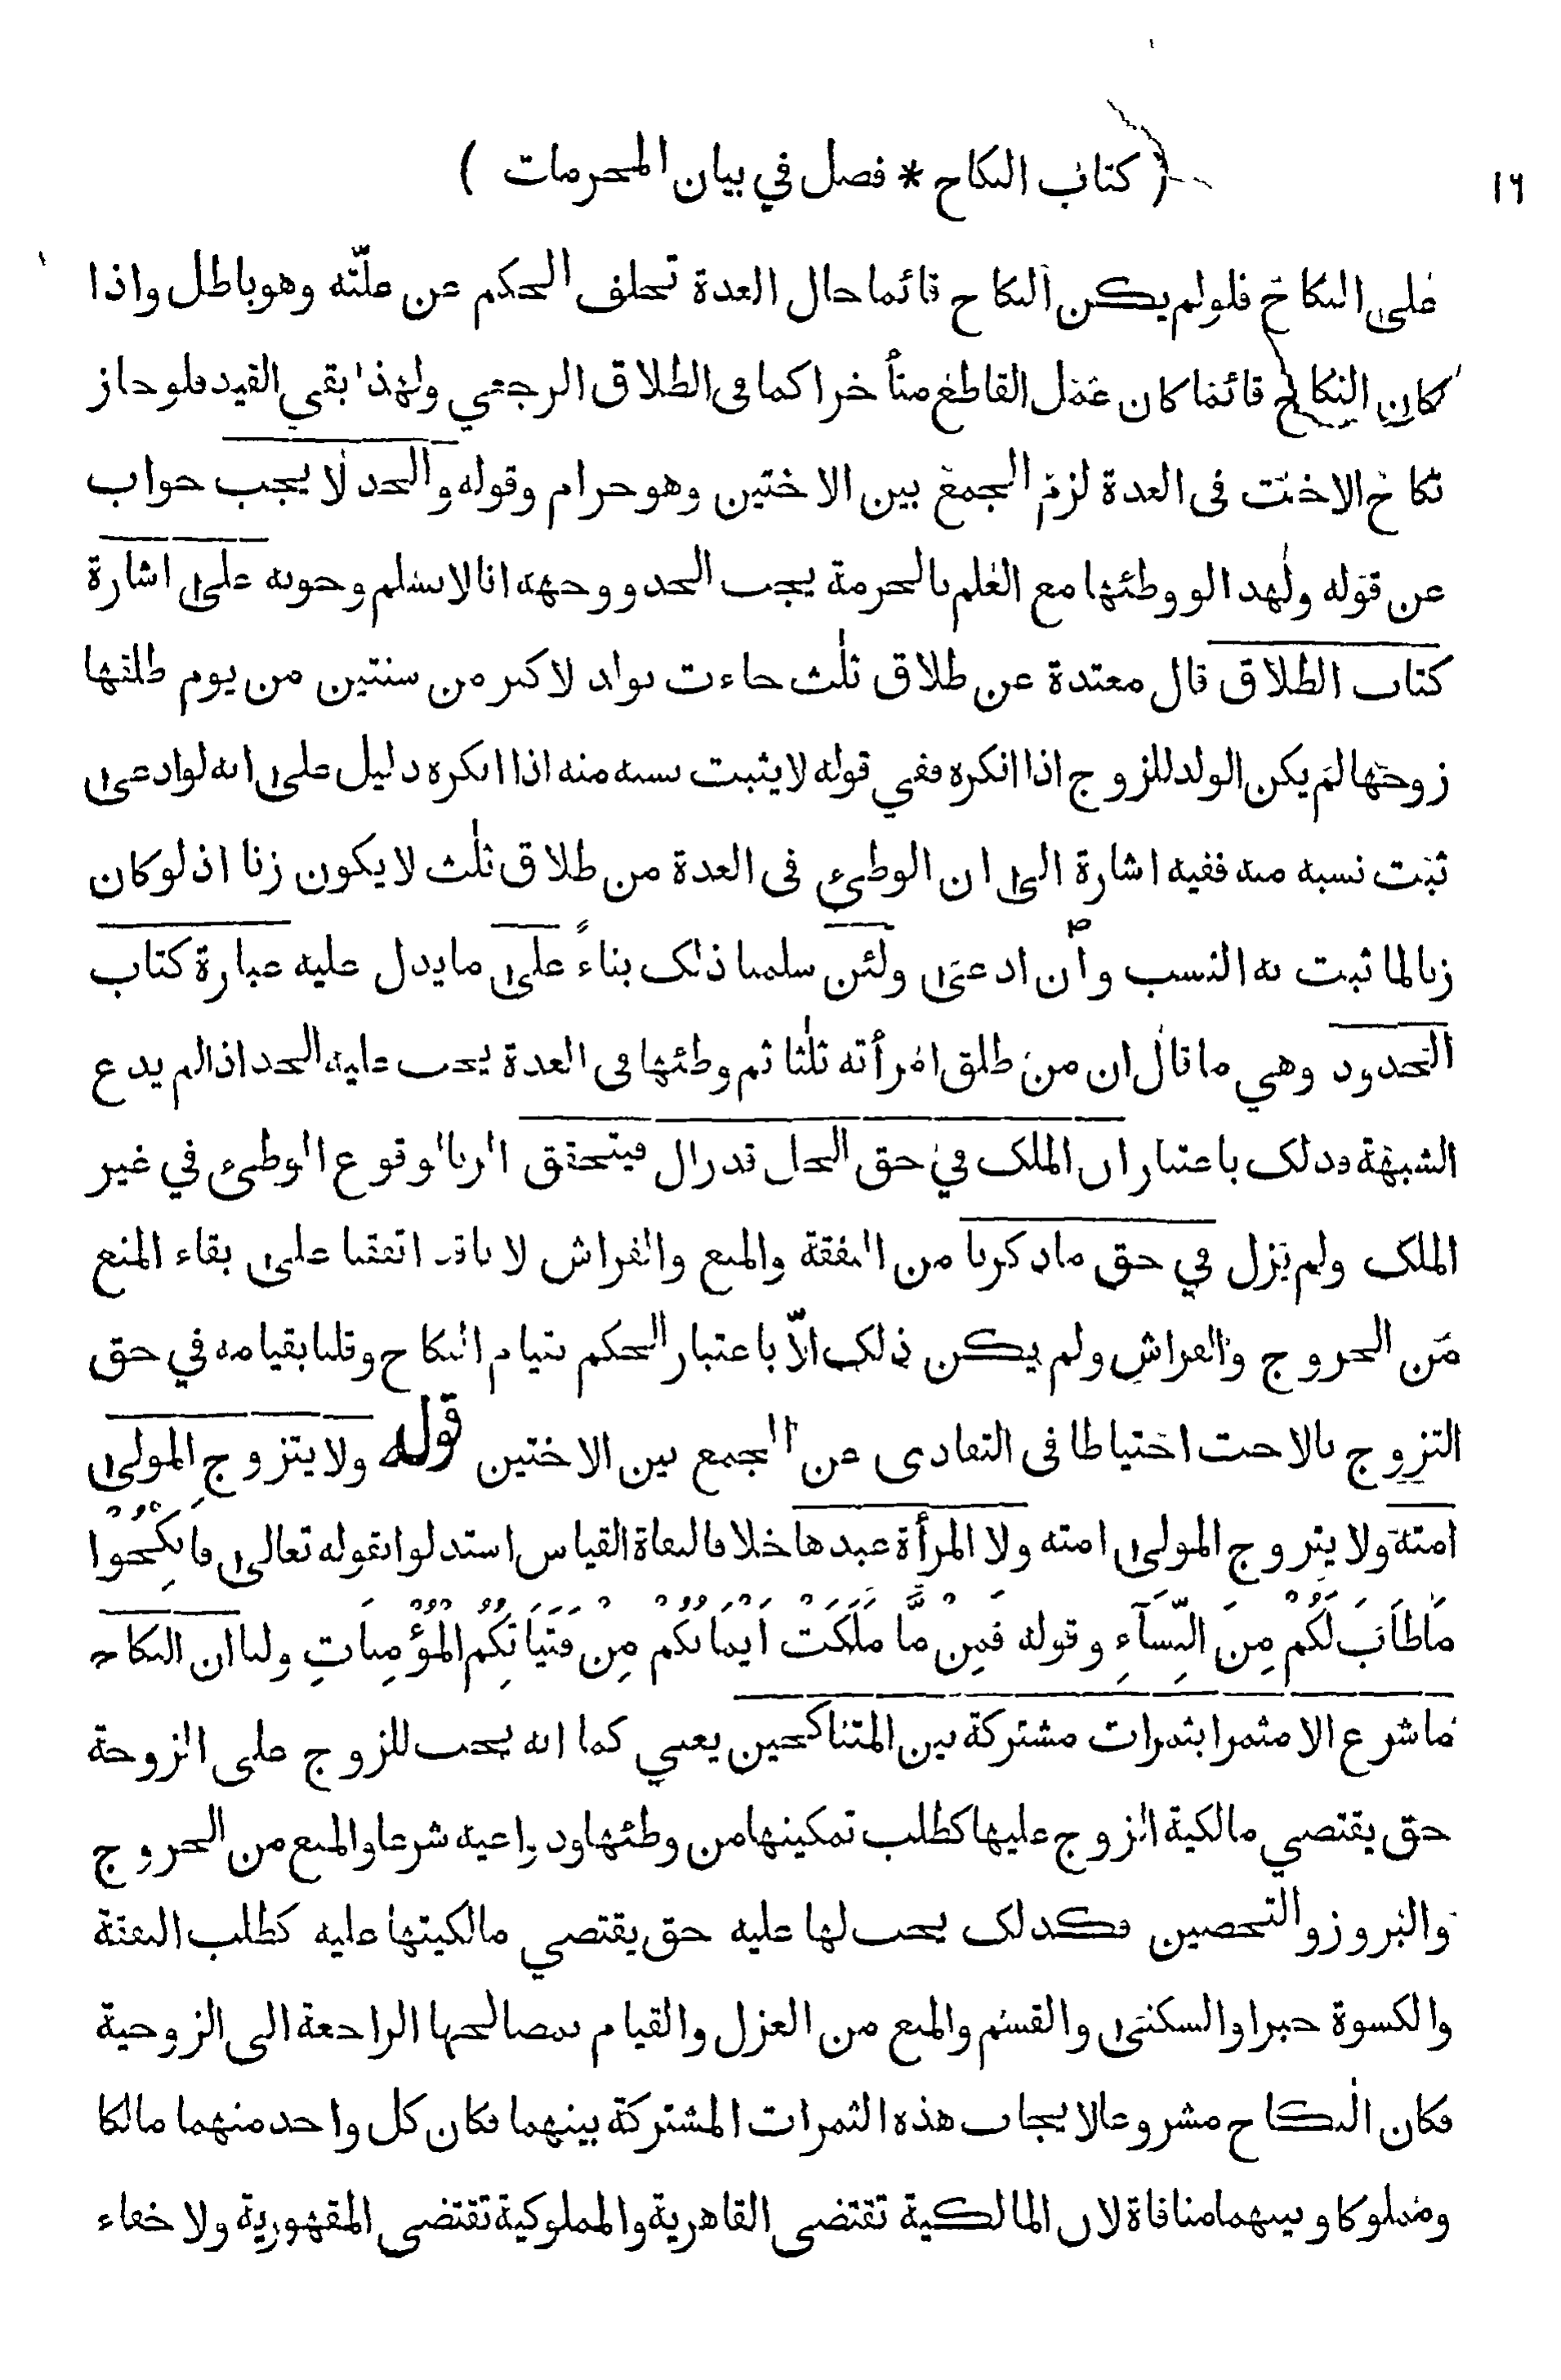 ( كتاب النكاح * فصل في بيان المحرمات ) ١٦
على النكاح فلولم يكن النكاح قائما حال العدة تخلف الحكم عن علّته وهو باطل واذا
كان النكاح قائما كان عمل القاطع متأخرا كما فى الطلاق الرجعي ولهذا بقي القيد فلو جاز
نكاح الاخت فى العدة لزم الجمع بين الاختين وهو حرام وقوله والحد لا يجب جواب
عن قوله ولهذا لو وطئها مع العلم بالحرمة يجب الحد ووجهه انا لا نسلم وجوبه على اشارة
كتاب الطلاق قال معتدة عن طلاق ثلٰث جاءت بولد لاكثر من سنتين من يوم طلقها
زوجها لم يكن الولد للزوج اذا انكره ففي قوله لا يثبت نسبه منه اذا انكره دليل على انه لو ادعى
ثبت نسبه منه ففيه اشارة الى ان الوطئ فى العدة من طلاق ثلٰث لا يكون زنا اذ لو كان
زنا لما ثبت به النسب وأن ادعى ولئن سلمنا ذلك بناءً على ما يدل عليه عبارة كتاب
الحدود وهي ما قال ان من طلق امرأته ثلٰثا ثم وطئها فى العدة يجب عليه الحد اذا لم يدع
الشبهة وذلك باعتبار ان الملك في حق الحل قد زال فيتحقق الزنا لوقوع الوطئ في غير
الملك ولم يزل في حق ما ذكرنا من النفقة والمنع والفراش لانا قد اتفقنا على بقاء المنع
من الخروج والفراش ولم يكن ذلك الاّ باعتبار الحكم بقيام النكاح وقلنا بقيامه في حق
التزوج بالاخت احتياطا فى التفادى عن الجمع بين الاختين قوله ولا يتزوج المولى
امته ولا يتزوج المولى امته ولا المرأة عبدها خلافا لنفاة القياس استدلوا بقوله تعالى فَانْكِحُوْا
مَاطَابَ لَكُمْ مِنَ النِّسَآءِ وقوله فَمِنْ مَّا مَلَكَتْ اَيْمَانُكُمْ مِنْ فَتَيَاتِكُمُ الْمُؤْمِنَاتِ ولنا ان النكاح
ما شرع الا مثمرا بثمرات مشتركة بين المتناكحين يعني كما انه يجب للزوج على الزوجة
حق يقتضي مالكية الزوج عليها كطلب تمكينها من وطئها ودواعيه شرعا والمنع من الخروج
والبروز والتحصين فكذلك يجب لها عليه حق يقتضي مالكيتها عليه كطلب النفقة
والكسوة جبرا والسكنى والقسم والمنع من العزل والقيام بمصالحها الراجعة الى الزوجية
فكان النكاح مشروعا لايجاب هذه الثمرات المشتركة بينهما فكان كل واحد منهما مالكا
ومملوكا وبينهما منافاة لان المالكية تقتضى القاهرية والمملوكية تقتضى المقهورية ولا خفاء